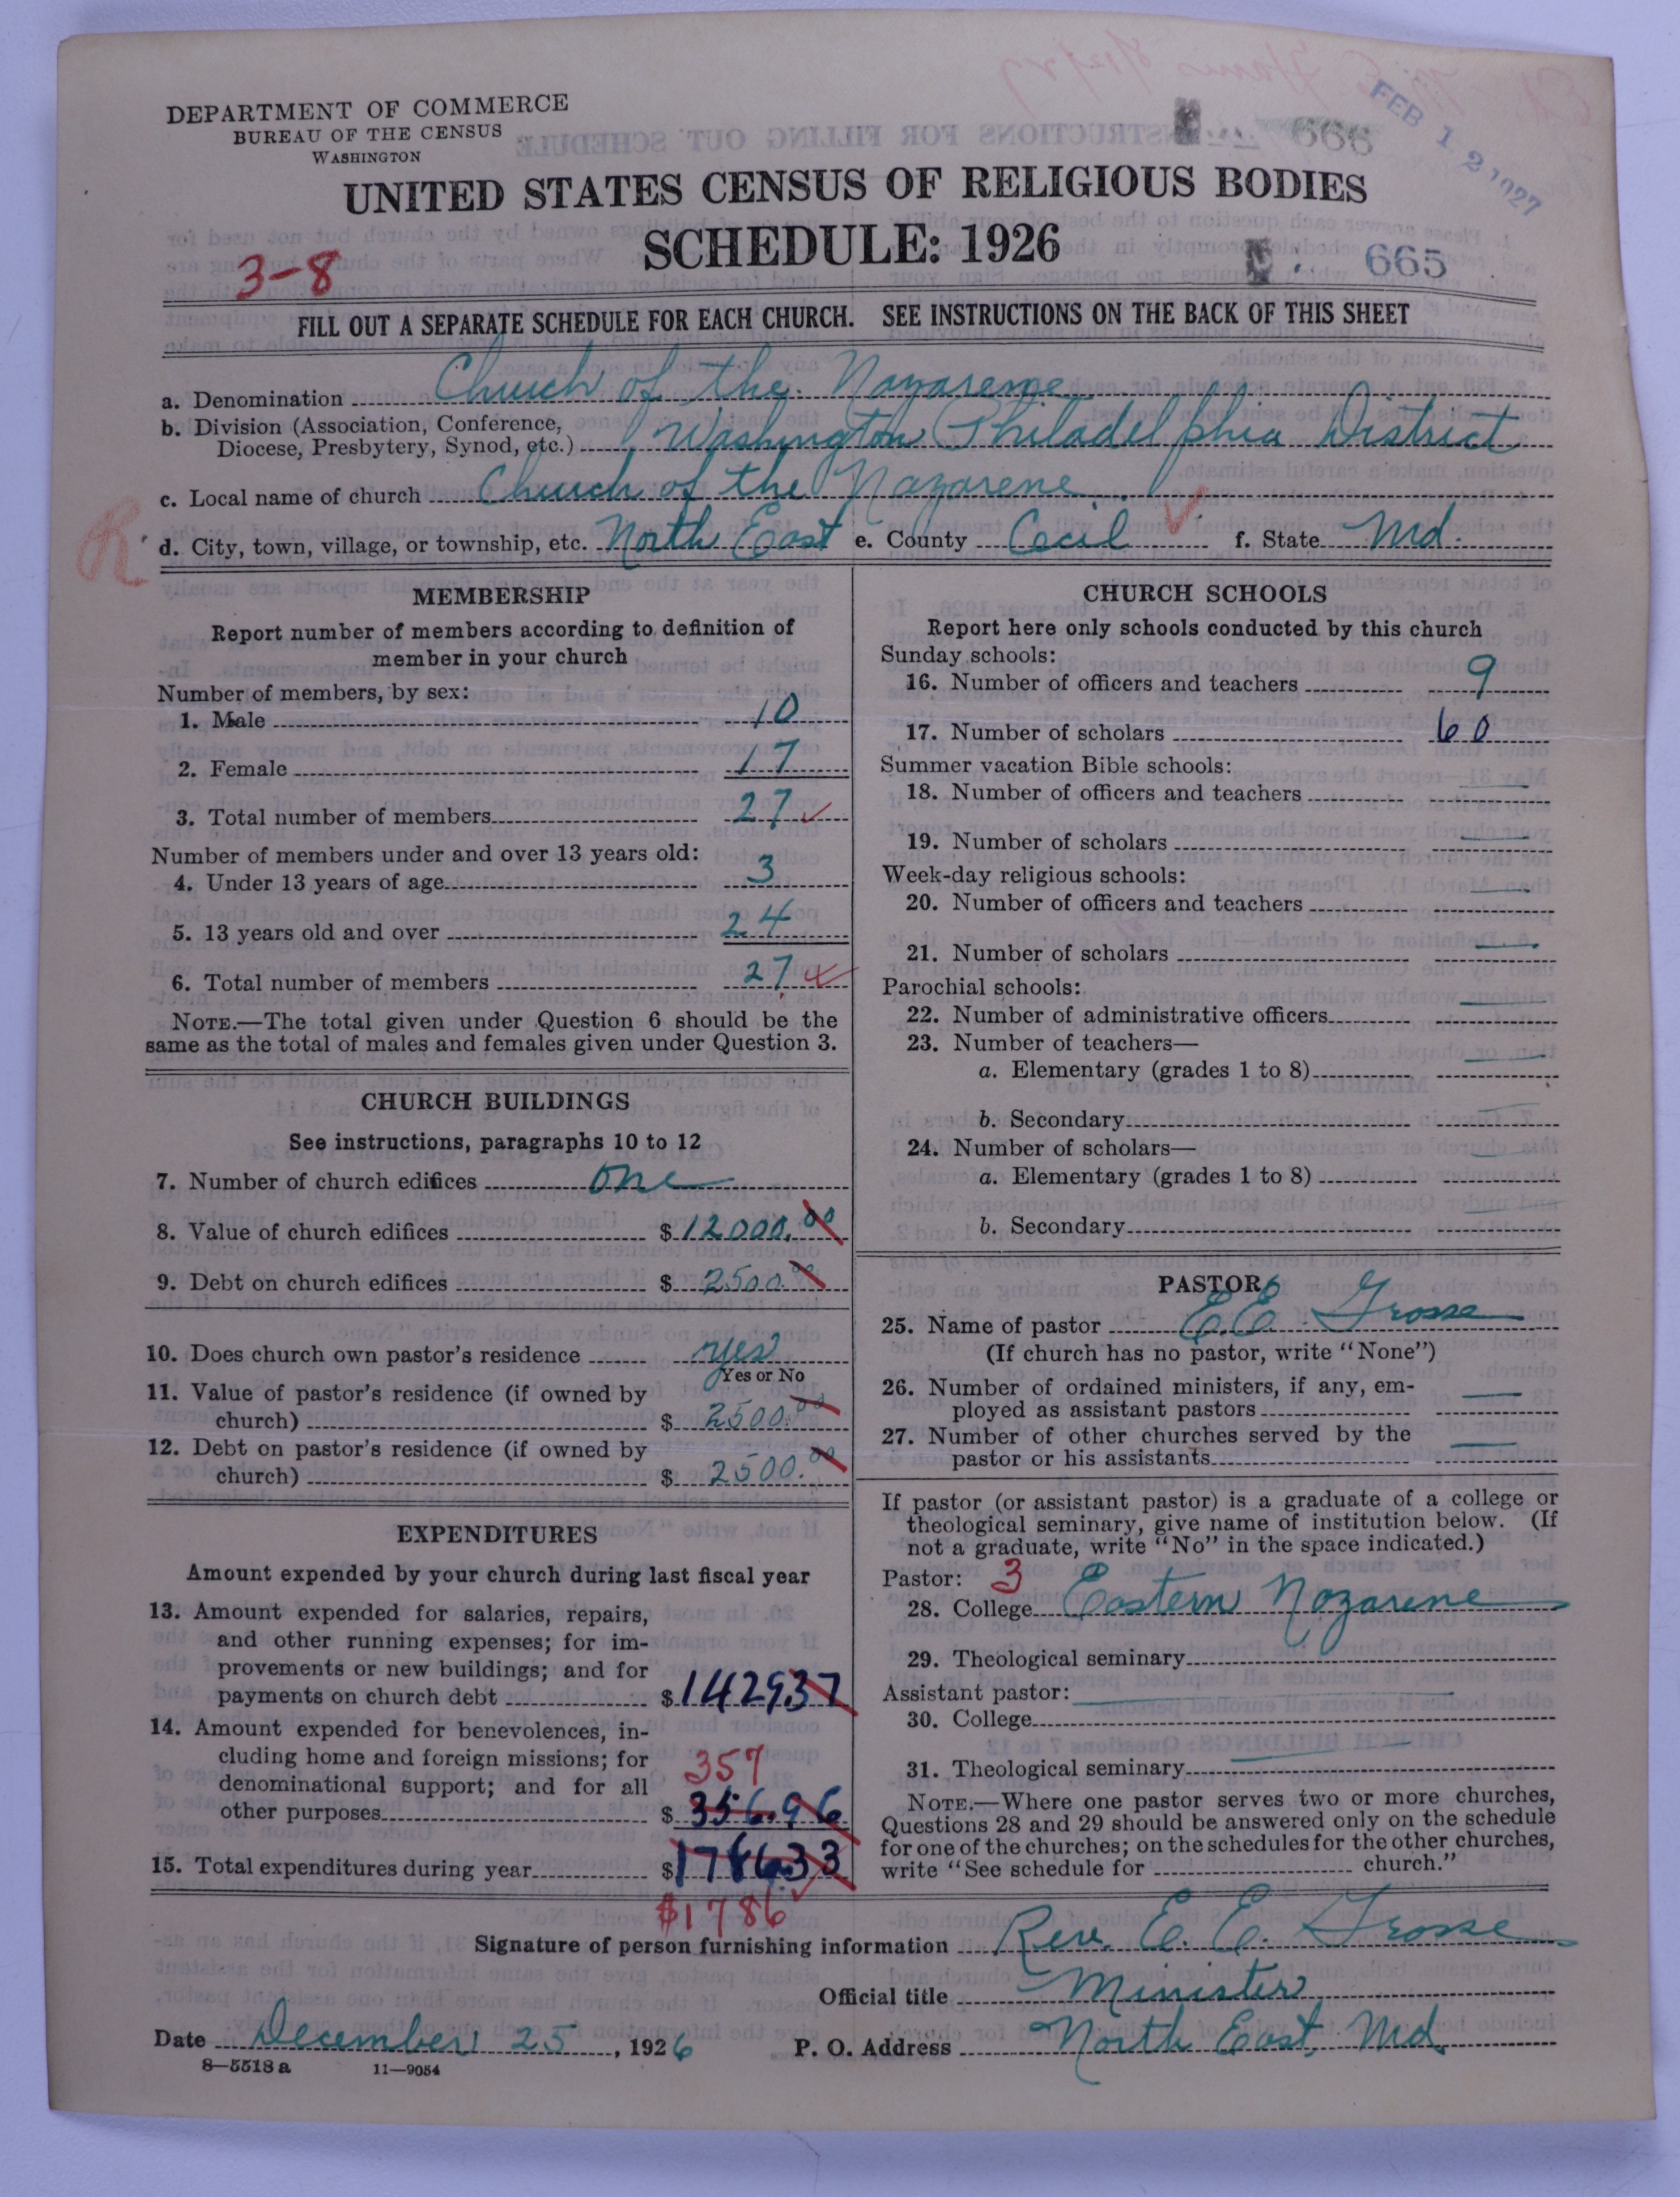 DEPARTMENT OF COMMERCE
BUREAU OF THE CENSUS
WASHINGTON
666
FEB 12 1927
UNITED STATES CENSUS OF RELIGIOUS BODIES
SCHEDULE: 1926
3-8
665
FILL OUT A SEPARATE SCHEDULE FOR EACH CHURCH. SEE INSTRUCTIONS ON THE BACK OF THIS SHEET
a. Denomination Church of the Nazarene
b. Division (Association, Conference,
Diocese, Presbytery, Synod, etc.) Washington Philadelphia District
c. Local name of church Church of the Nazarene
R
d. City, town, village, or township, etc. North East e. County Cecil f. State Md.
MEMBERSHIP
Report number of members according to definition of
member in your church
Number of members, by sex:
1. Male 10
2. Female 17
3. Total number of members 27
Number of members under and over 13 years old:
4. Under 13 years of age 3
5. 13 years old and over 24
6. Total number of members 27
NOTE.—The total given under Question 6 should be the
same as the total of males and females given under Question 3.
CHURCH BUILDINGS
See instructions, paragraphs 10 to 12
7. Number of church edifices one
8. Value of church edifices $ 12000.00
9. Debt on church edifices $ 2500.00
10. Does church own pastor's residence yes
Yes or No
11. Value of pastor's residence (if owned by
church) $ 2500.00
12. Debt on pastor's residence (if owned by
church) $ 2500.00
EXPENDITURES
Amount expended by your church during last fiscal year
13. Amount expended for salaries, repairs,
and other running expenses; for im-
provements or new buildings; and for
payments on church debt $ 1429.37
14. Amount expended for benevolences, in-
cluding home and foreign missions; for
denominational support; and for all
357
other purposes $ 356.96
15. Total expenditures during year $ 1786.33
$1786
CHURCH SCHOOLS
Report here only schools conducted by this church
Sunday schools:
16. Number of officers and teachers 9
17. Number of scholars 60
Summer vacation Bible schools:
18. Number of officers and teachers —
19. Number of scholars —
Week-day religious schools:
20. Number of officers and teachers —
21. Number of scholars —
Parochial schools:
22. Number of administrative officers —
23. Number of teachers—
a. Elementary (grades 1 to 8) —
b. Secondary —
24. Number of scholars—
a. Elementary (grades 1 to 8) —
b. Secondary —
PASTOR
25. Name of pastor E. E. Grosse
(If church has no pastor, write "None")
26. Number of ordained ministers, if any, em-
ployed as assistant pastors —
27. Number of other churches served by the
pastor or his assistants —
If pastor (or assistant pastor) is a graduate of a college or
theological seminary, give name of institution below. (If
not a graduate, write "No" in the space indicated.)
Pastor: 3
28. College Eastern Nazarene
29. Theological seminary
Assistant pastor: —
30. College
31. Theological seminary —
NOTE.—Where one pastor serves two or more churches,
Questions 28 and 29 should be answered only on the schedule
for one of the churches; on the schedules for the other churches,
write "See schedule for church."
Signature of person furnishing information Rev. E. E. Grosse
Official title Minister
Date December 25, 1926 P. O. Address North East, Md.
8—5518 a 11—9054